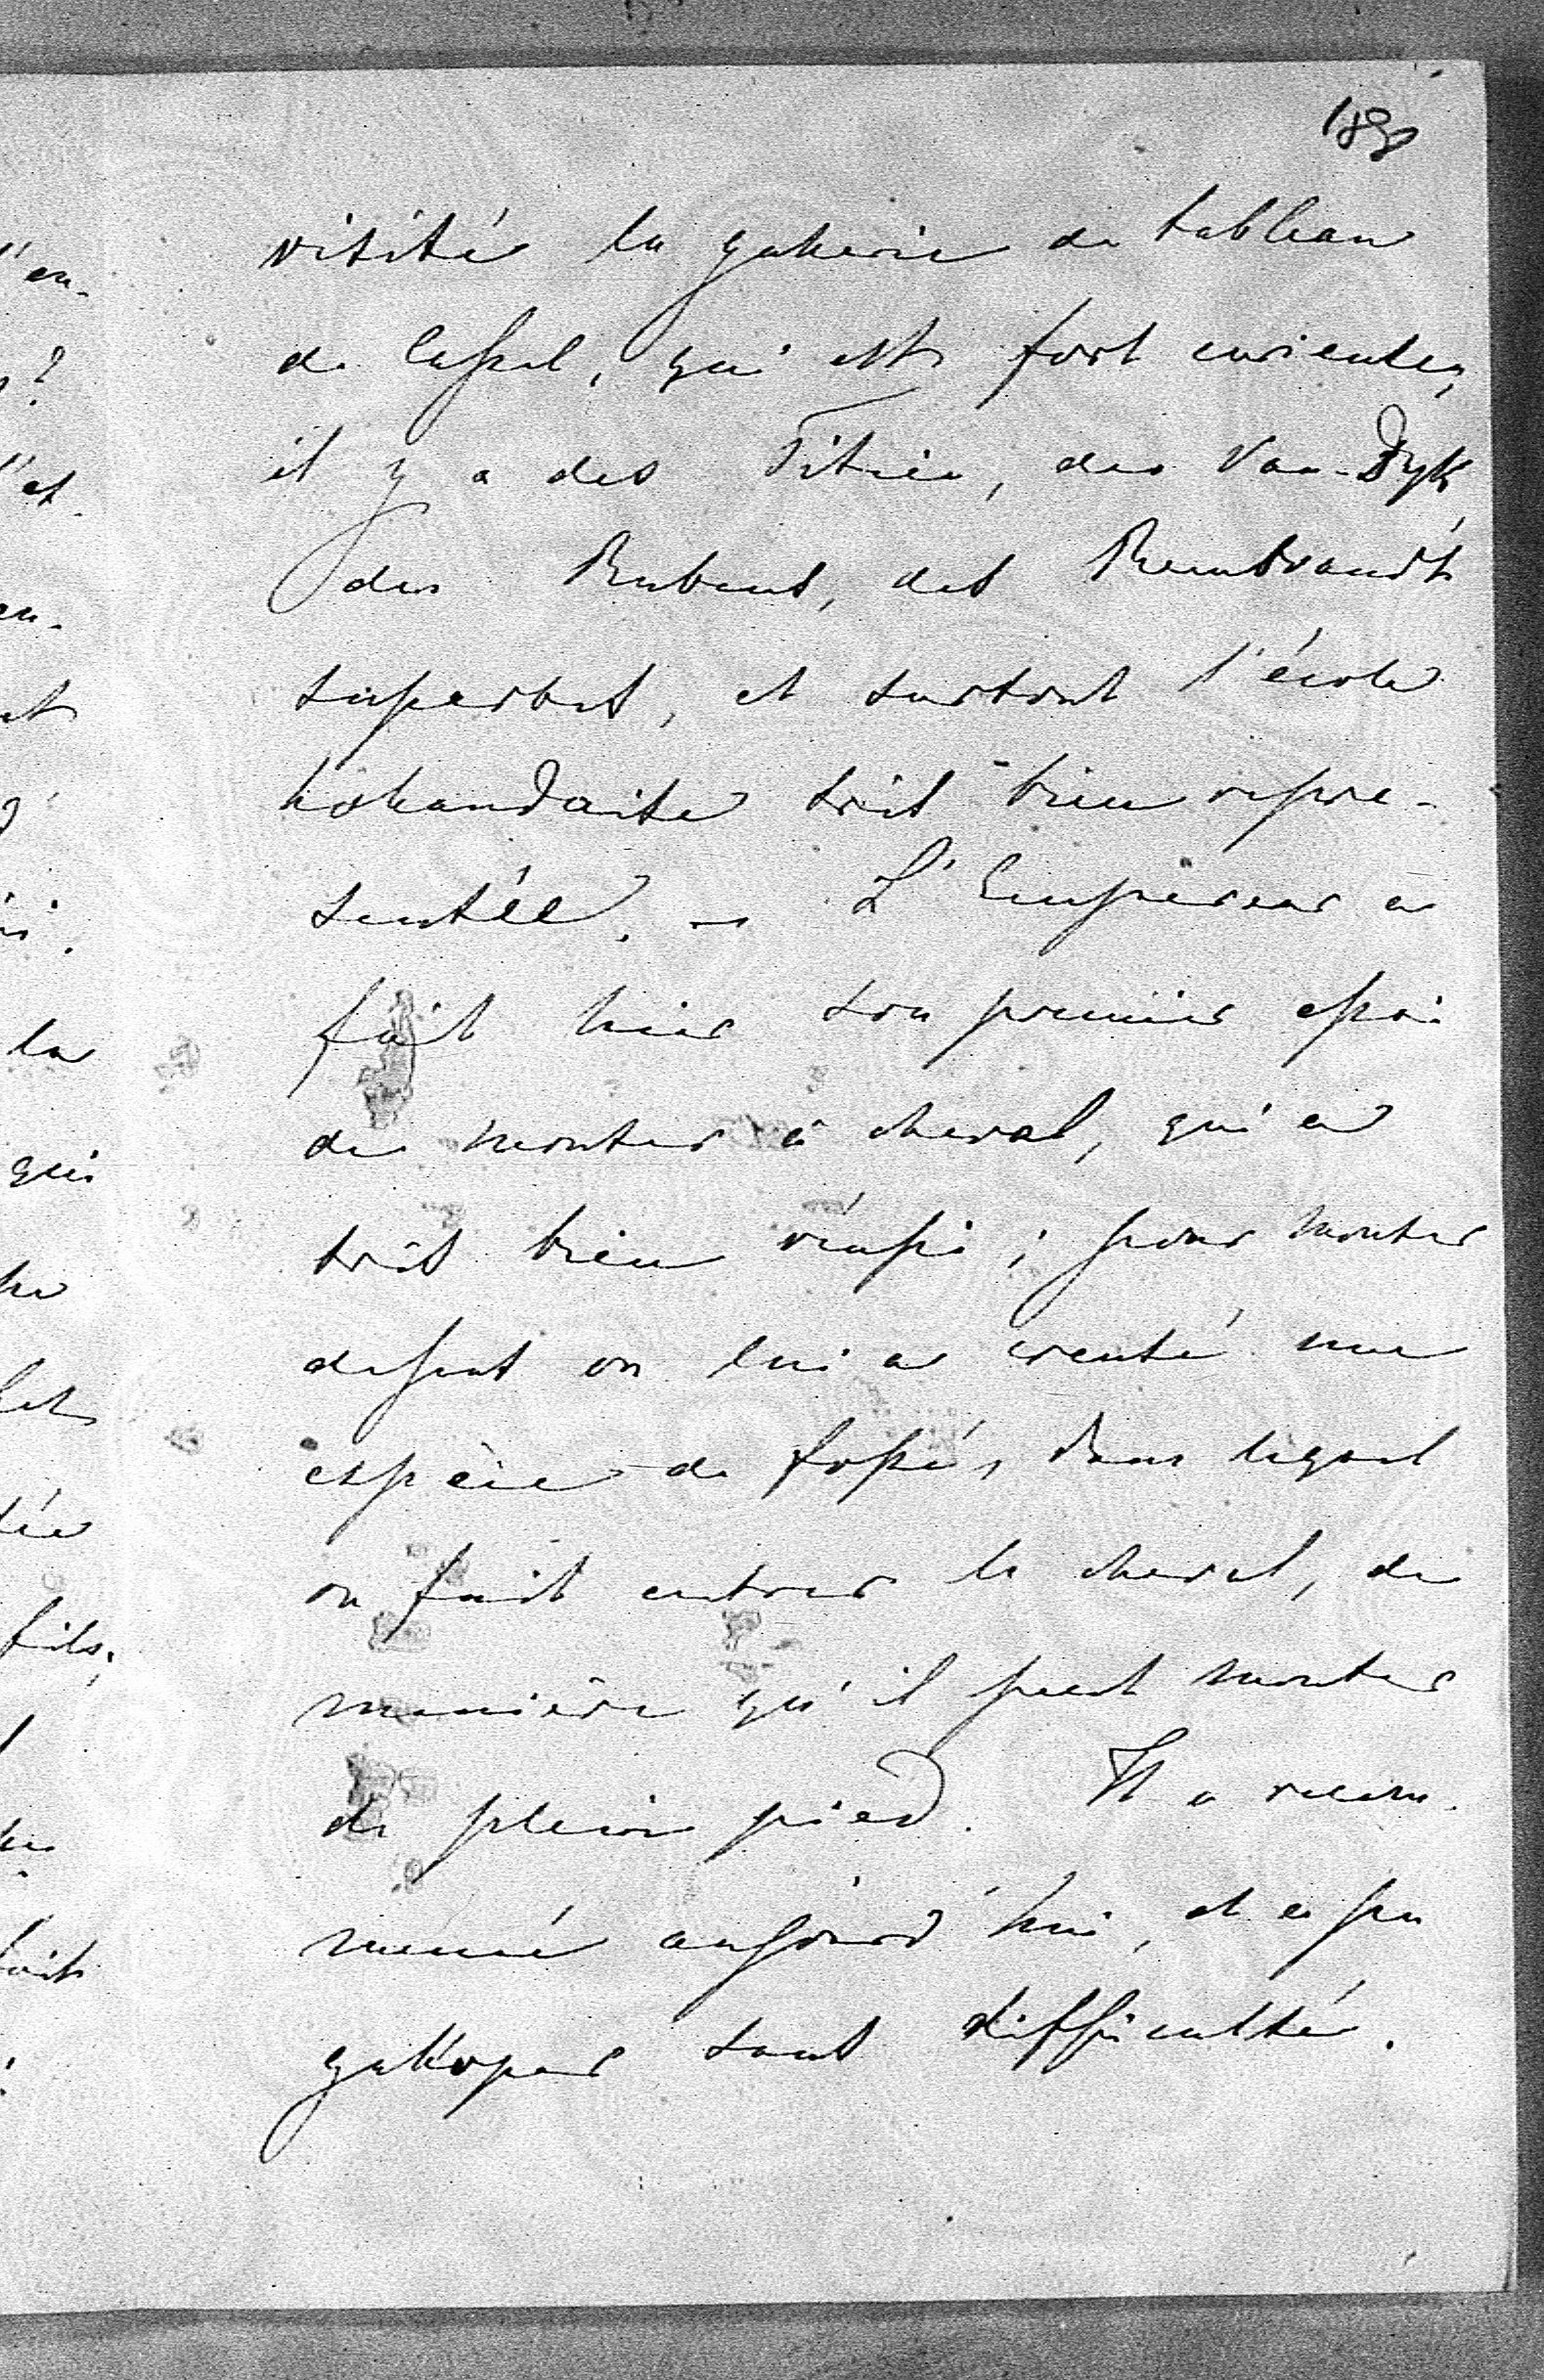 visité la galerie de tableau
de Cassel, qui est fort curieuse,
il y a des Titien, des Van-Dyk,
des Rubens, des Rembrandt
superbes, et surtout l'école
hollandaise très bien repré-
sentée. — L'Empereur a
fait hier son premier essai
de monter à cheval, qui a
très bien réussi; pour monter
dessus on lui a creusé une
espèce de fossé, dans lequel
on fait entrer le cheval, de
manière qu'il peut monter
de plein pied. Il a recom-
mencé aujourd'hui, et a pu
galloper sans difficulté.
l'en-
?
en-
la
qui
fils,